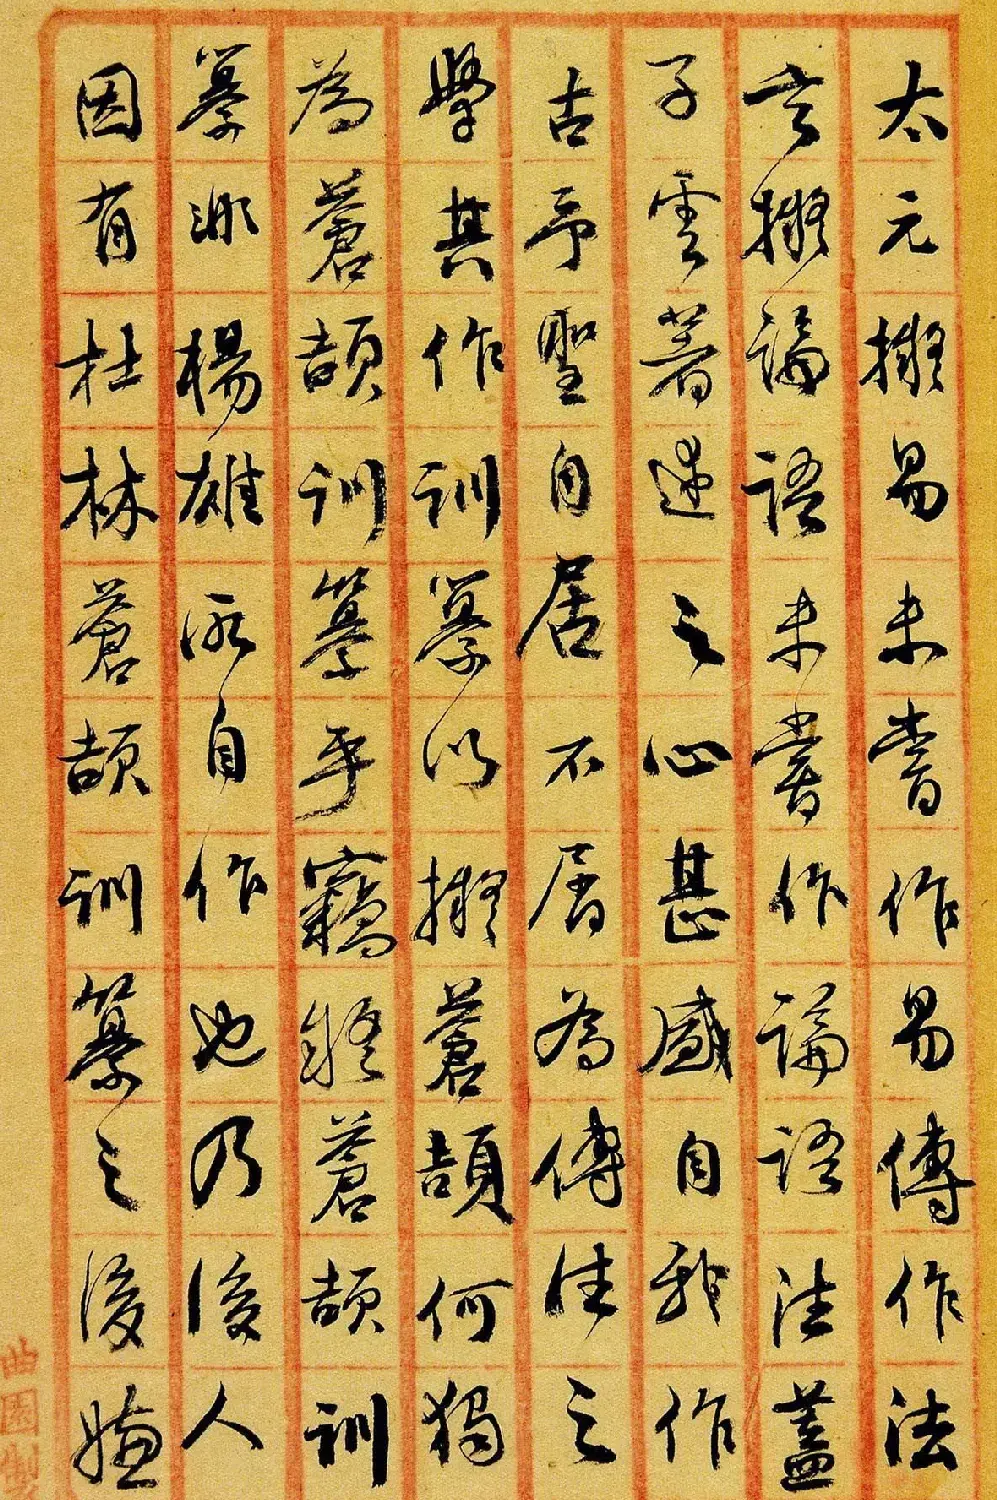 太元擬易未嘗作易傳作法
言擬論語未嘗作論語注蓋
子雲著述之心甚盛自我作
古予聖自居不屑為傳注之
學其作訓纂以擬蒼頡何獨
為蒼頡訓纂乎竊疑蒼頡訓
纂非楊雄所自作也乃後人
因有杜林蒼頡訓纂之後嫌
曲園製